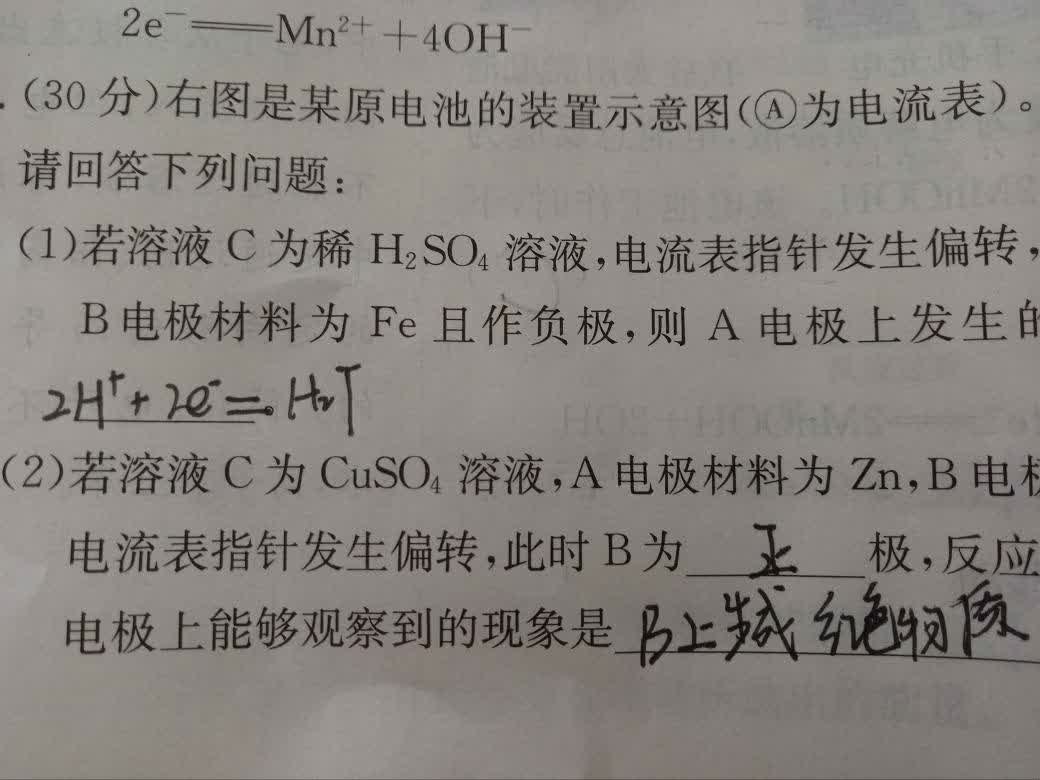 2e⁻══Mn²⁺+4OH⁻
.(30 分)右图是某原电池的装置示意图(Ⓐ为电流表)。
请回答下列问题:
(1)若溶液 C 为稀 H₂SO₄ 溶液,电流表指针发生偏转,
B电极材料为 Fe 且作负极,则 A 电极上发生的
2H⁺+2e⁻=H₂↑
(2)若溶液 C 为 CuSO₄ 溶液,A 电极材料为 Zn,B 电极
电流表指针发生偏转,此时 B 为 正 极,反应
电极上能够观察到的现象是 B上生成红色物质